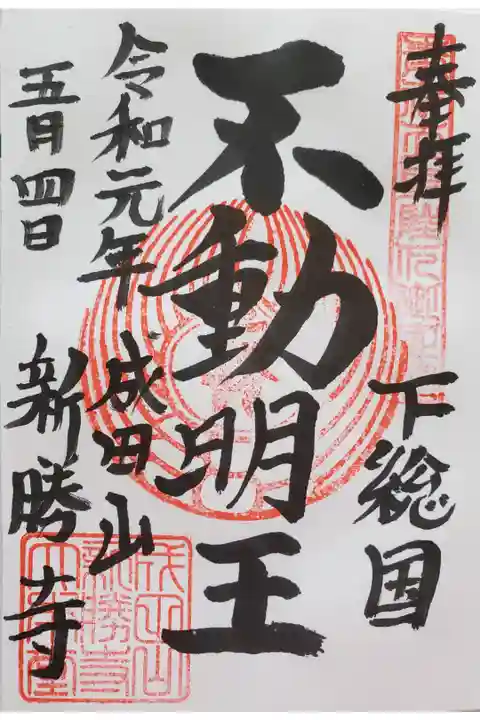 奉拝
下総国
不動明王
令和元年
成田山
五月四日
新勝寺
成田山
新勝寺